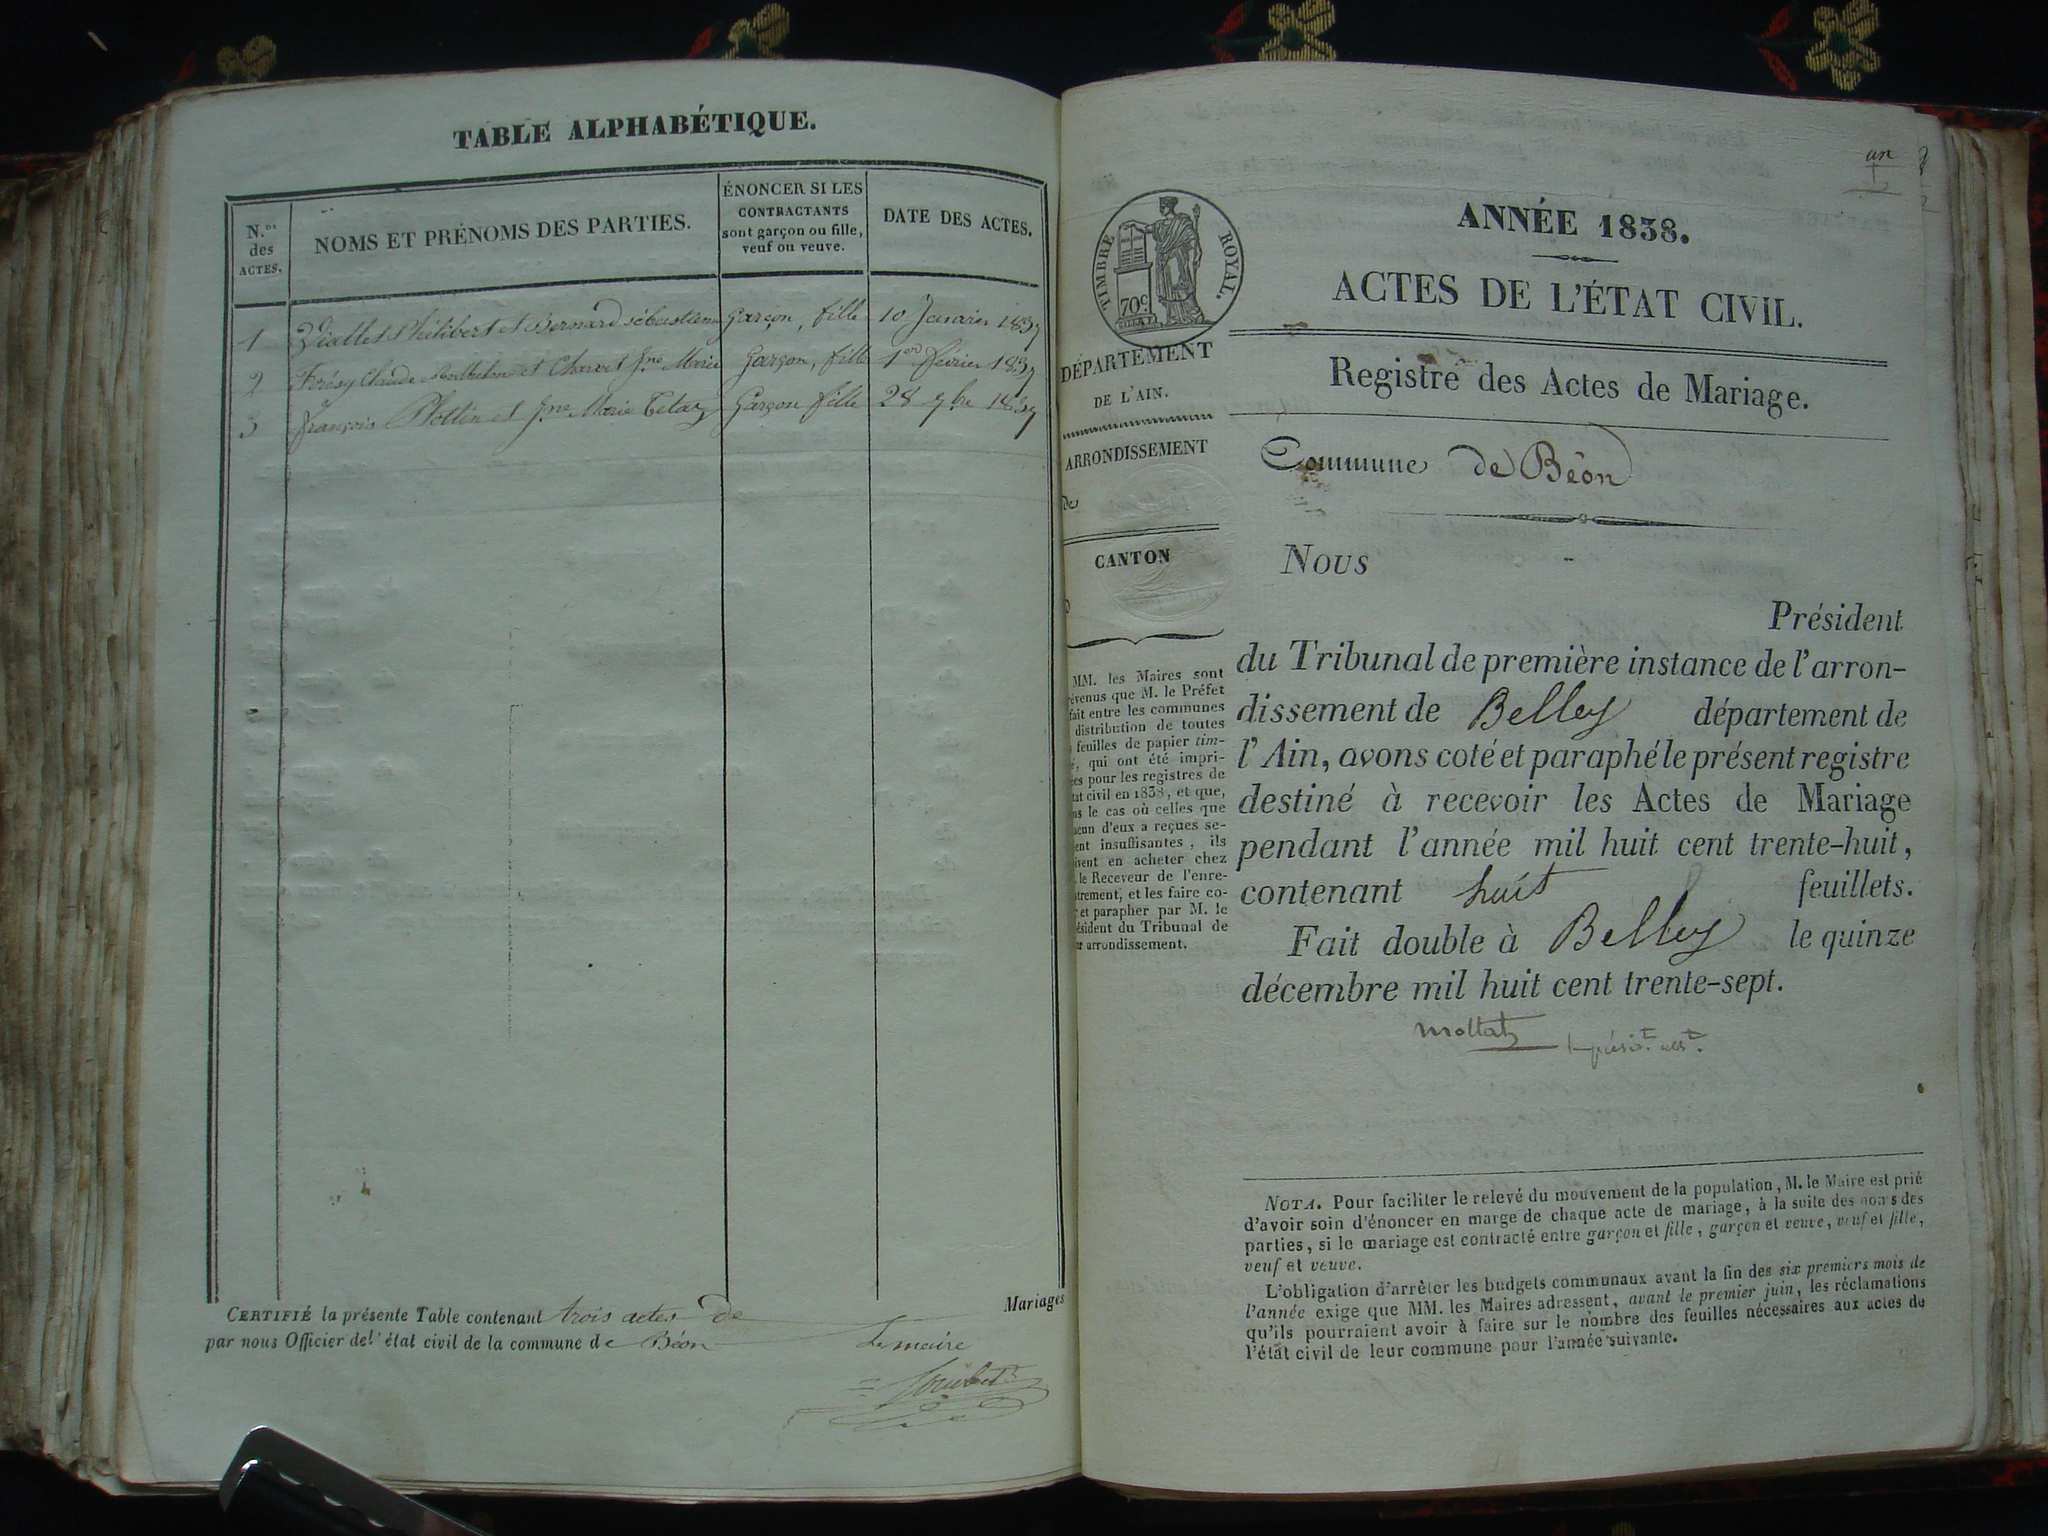 TABLE ALPHABÉTIQUE.
N.os des ACTES.
NOMS ET PRÉNOMS DES PARTIES.
ÉNONCER SI LES
CONTRACTANTS
sont garçon ou fille,
veuf ou veuve.
DATE DES ACTES.
1 Philibert et Bernard sébastienne Garçon, fille 10 Janvier 1837
2 Claude et Jne Marie Garçon, fille 1er février 1837
3 François et Jne Marie Garçon fille 28 9bre 1837
Mariages
CERTIFIÉ la présente Table contenant trois actes de
par nous Officier de l'état civil de la commune de Béon
Le maire
un
TIMBRE ROYAL.
70c.
ANNÉE 1838.
ACTES DE L'ÉTAT CIVIL.
DÉPARTEMENT
DE L'AIN.
ARRONDISSEMENT
de
CANTON
Registre des Actes de Mariage.
Commune de Béon
Nous
Président
du Tribunal de première instance de l'arron-
dissement de Belley département de
l'Ain, avons coté et paraphé le présent registre
destiné à recevoir les Actes de Mariage
pendant l'année mil huit cent trente-huit,
contenant huit feuillets.
Fait double à Belley le quinze
décembre mil huit cent trente-sept.
MM. les Maires sont
évenus que M. le Préfet
fait entre les communes
distribution de toutes
feuilles de papier tim-
é, qui ont été impri-
ées pour les registres de
tat civil en 1838, et que,
ns le cas où celles que
acun d'eux a reçues se-
ent insuffisantes, ils
ivent en acheter chez
le Receveur de l'enre-
strement, et les faire co-
r et parapher par M. le
ésident du Tribunal de
ur arrondissement.
NOTA. Pour faciliter le relevé du mouvement de la population, M. le Maire est prié
d'avoir soin d'énoncer en marge de chaque acte de mariage, à la suite des noms des
parties, si le mariage est contracté entre garçon et fille, garçon et veuve, veuf et fille,
veuf et veuve.
L'obligation d'arrêter les budgets communaux avant la fin des six premiers mois de
l'année exige que MM. les Maires adressent, avant le premier juin, les réclamations
qu'ils pourraient avoir à faire sur le nombre des feuilles nécessaires aux actes de
l'état civil de leur commune pour l'année suivante.